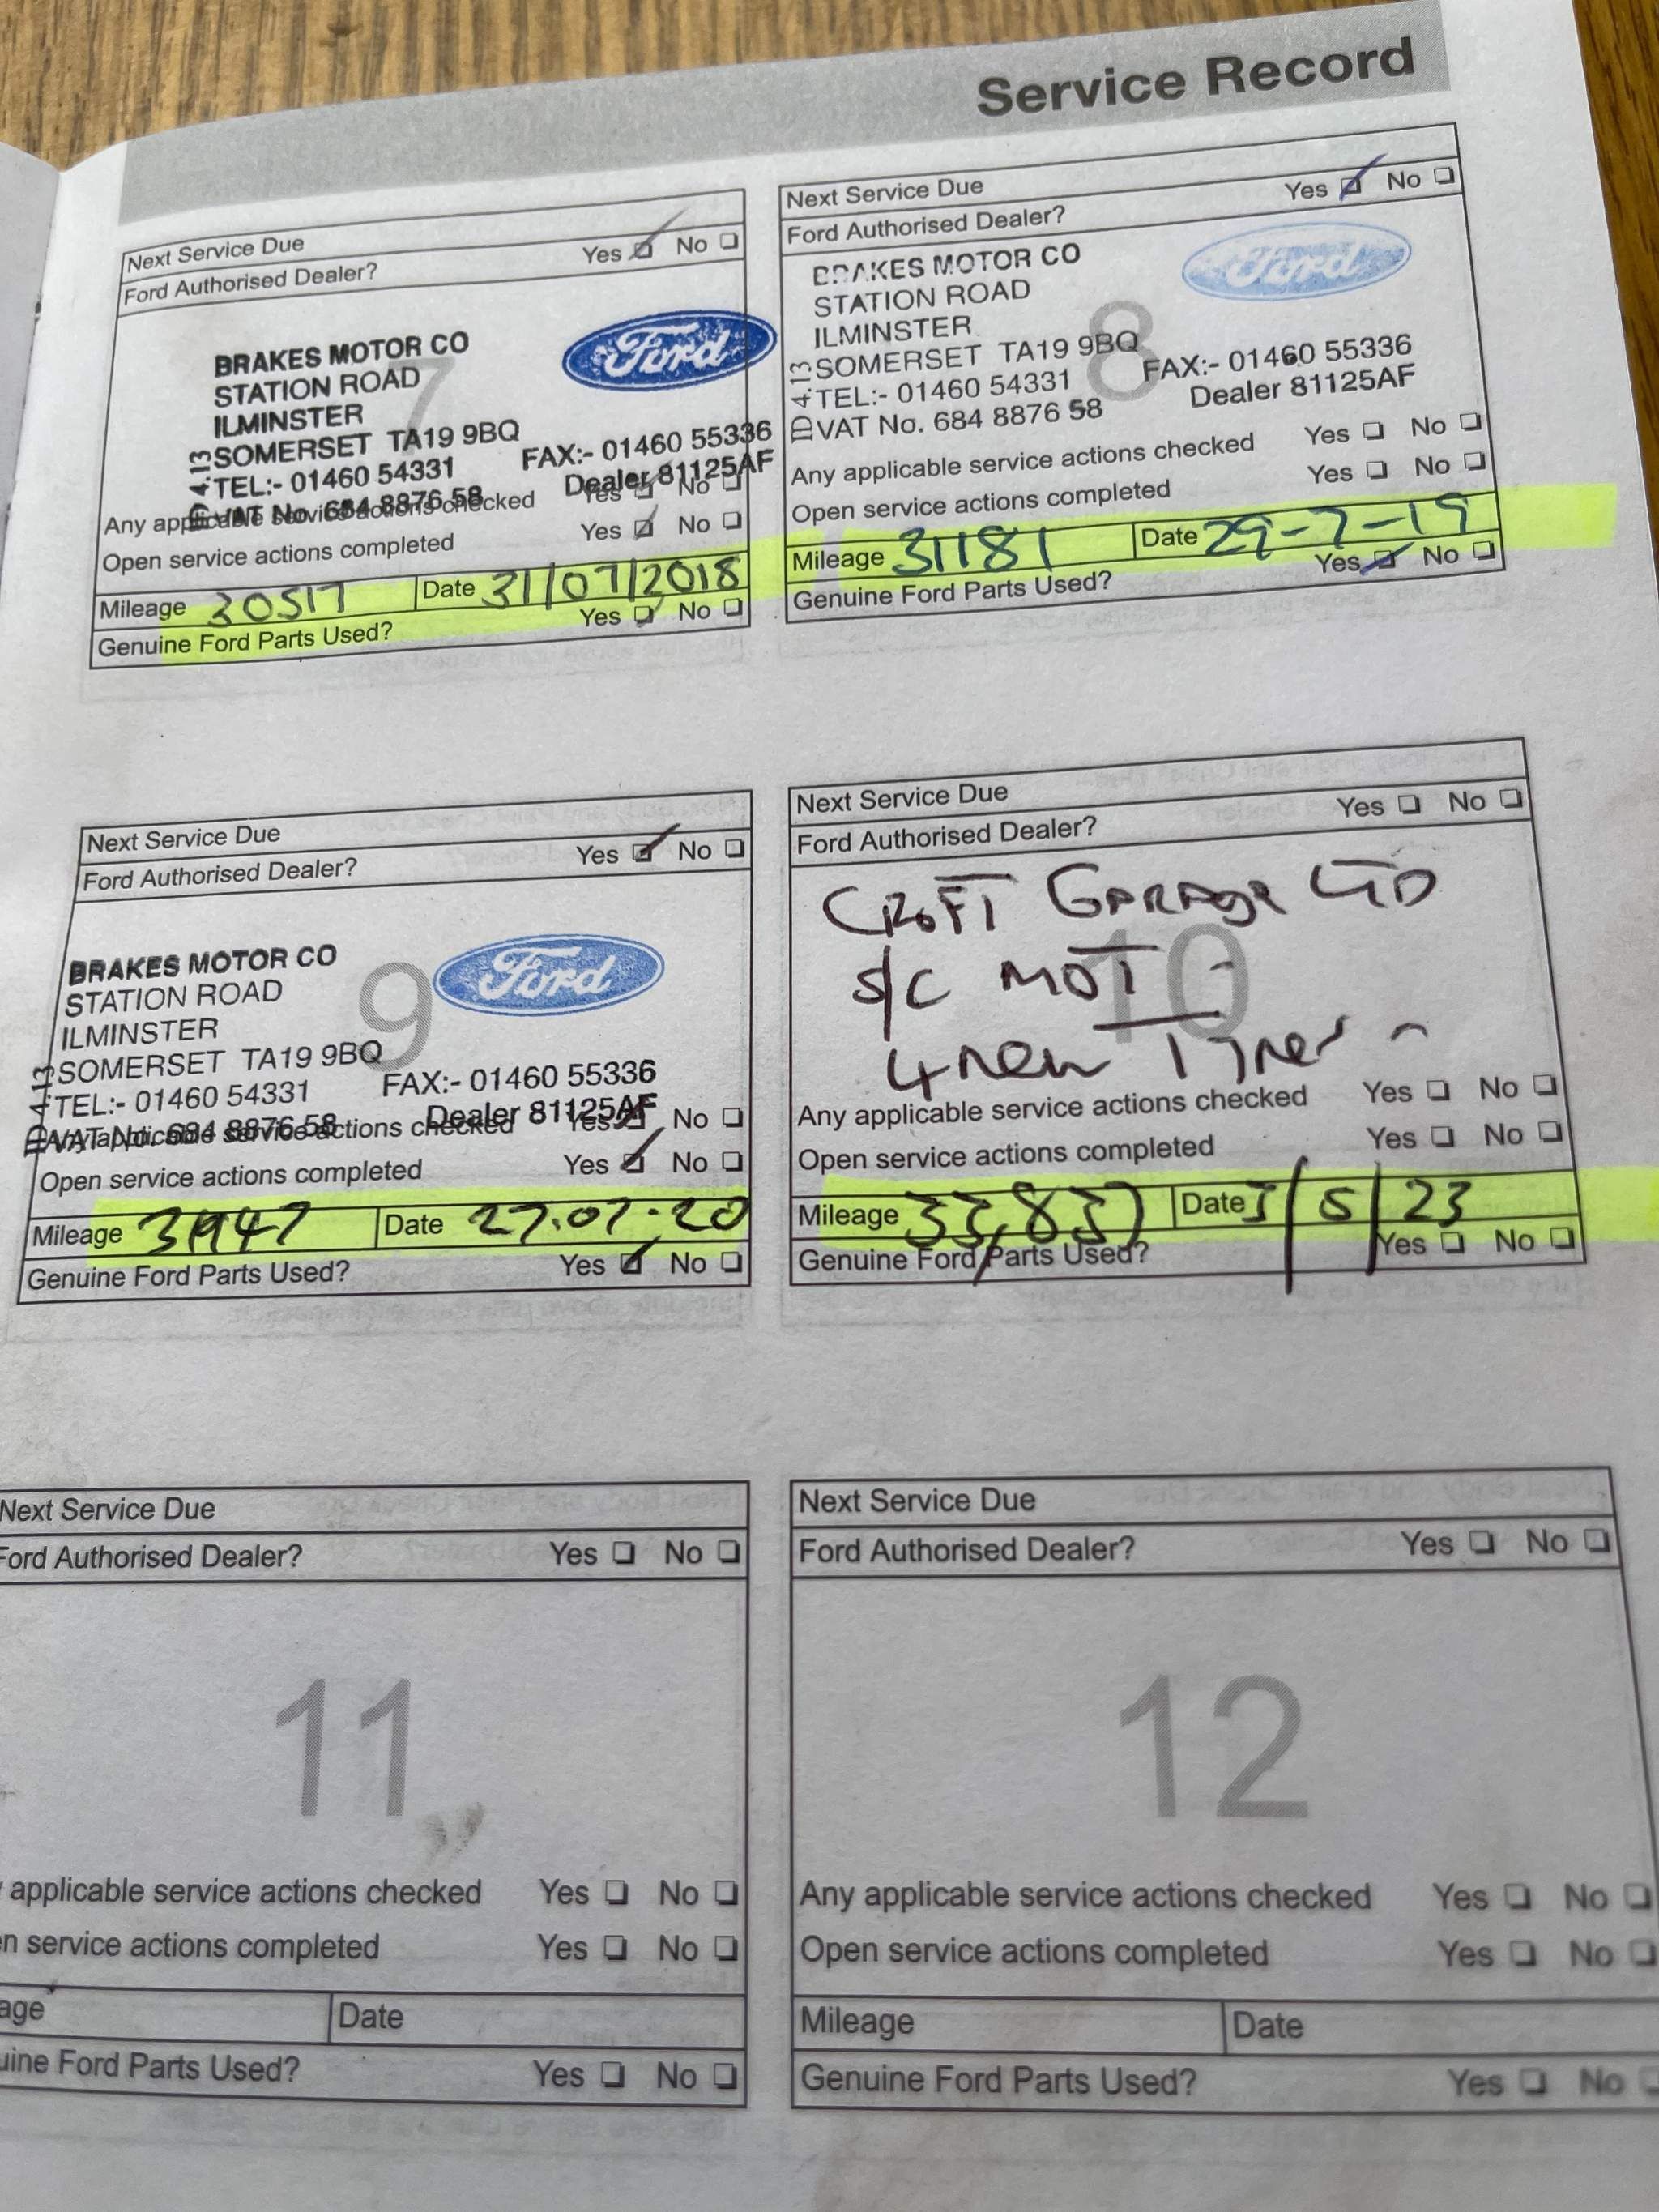 Service Record
Next Service Due
Ford Authorised Dealer? Yes No
7
BRAKES MOTOR CO
STATION ROAD
ILMINSTER
SOMERSET TA19 9BQ
TEL:- 01460 54331 FAX:- 01460 55336
VAT No. 684 8876 58 Dealer 81125AF
ID 4.13
Ford
Any applicable service actions checked Yes No
Open service actions completed Yes No
Mileage 30517 Date 31/07/2018
Genuine Ford Parts Used? Yes No
Next Service Due
Ford Authorised Dealer? Yes No
8
BRAKES MOTOR CO
STATION ROAD
ILMINSTER
SOMERSET TA19 9BQ
TEL:- 01460 54331 FAX:- 01460 55336
VAT No. 684 8876 58 Dealer 81125AF
ID 4.13
Ford
Any applicable service actions checked Yes No
Open service actions completed Yes No
Mileage 31181 Date 29-7-19
Genuine Ford Parts Used? Yes No
Next Service Due
Ford Authorised Dealer? Yes No
9
BRAKES MOTOR CO
STATION ROAD
ILMINSTER
SOMERSET TA19 9BQ
TEL:- 01460 54331 FAX:- 01460 55336
VAT No. 684 8876 58 Dealer 81125AF
ID 4.13
Ford
Any applicable service actions checked Yes No
Open service actions completed Yes No
Mileage Date 27.07.20
Genuine Ford Parts Used? Yes No
Next Service Due
Ford Authorised Dealer? Yes No
10
CROFT GARAGE LTD
S/C MOT -
4 new Tyres
Any applicable service actions checked Yes No
Open service actions completed Yes No
Mileage Date /5/23
Genuine Ford Parts Used? Yes No
Next Service Due
Ford Authorised Dealer? Yes No
11
applicable service actions checked Yes No
n service actions completed Yes No
age Date
uine Ford Parts Used? Yes No
Next Service Due
Ford Authorised Dealer? Yes No
12
Any applicable service actions checked Yes No
Open service actions completed Yes No
Mileage Date
Genuine Ford Parts Used? Yes No